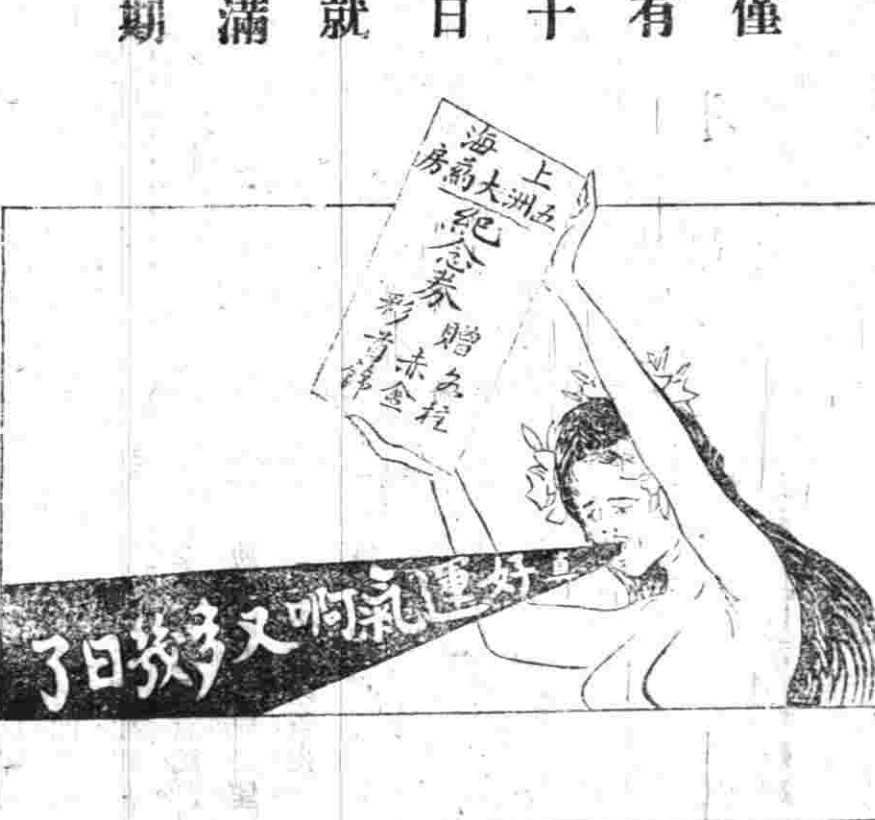 僅有十日就滿期
上海
五洲大藥房
紀念券
贈彩
各柱
赤金
首飾
真好運氣啊又多幾日了